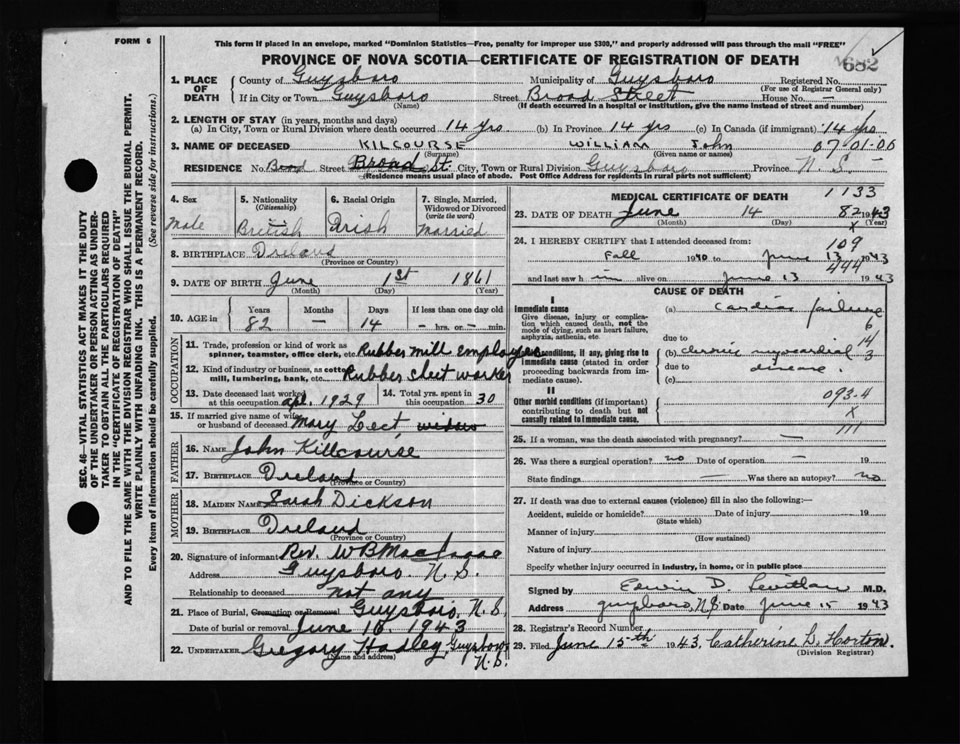 FORM 6
This form if placed in an envelope, marked "Dominion Statistics—Free, penalty for improper use $300," and properly addressed will pass through the mail "FREE"
PROVINCE OF NOVA SCOTIA—CERTIFICATE OF REGISTRATION OF DEATH
682
1. PLACE OF DEATH
County of Guysboro Municipality of Guysboro Registered No.
(For use of Registrar General only)
If in City or Town Guysboro Street Broad Street House No. —
(Name) (If death occurred in a hospital or institution, give the name instead of street and number)
2. LENGTH OF STAY (in years, months and days)
(a) In City, Town or Rural Division where death occurred 14 yrs (b) In Province 14 yrs (c) In Canada (if immigrant) 14 yrs
3. NAME OF DECEASED KILCOURSE WILLIAM John 07-01-00
(Surname) (Given name or names)
RESIDENCE No. Street Broad St. City, Town or Rural Division Guysboro Province N. S.
(Residence means usual place of abode. Post Office Address for residents in rural parts not sufficient)
4. Sex
Male
5. Nationality
(Citizenship)
British
6. Racial Origin
Irish
7. Single, Married, Widowed or Divorced
(write the word)
Married
8. BIRTHPLACE Ireland
(Province or Country)
9. DATE OF BIRTH June 1st 1861
(Month) (Day) (Year)
10. AGE in Years Months Days If less than one day old
82 — 14 — hrs. or — min.
OCCUPATION
11. Trade, profession or kind of work as
spinner, teamster, office clerk, etc. Rubber mill employee
12. Kind of industry or business, as cotton
mill, lumbering, bank, etc. Rubber sheet worker
13. Date deceased last worked
at this occupation Apl. 1929
14. Total yrs. spent in
this occupation 30
15. If married give name of wife
or husband of deceased Mary Lect,
FATHER
16. NAME John Killcourse
17. BIRTHPLACE Ireland
(Province or Country)
MOTHER
18. MAIDEN NAME Sarah Dickson
19. BIRTHPLACE Ireland
(Province or Country)
20. Signature of informant Rev. W B
Address Guysboro. N. S.
Relationship to deceased not any
21. Place of Burial, Cremation or Removal Guysboro, N. S.
Date of burial or removal June 16, 1943
22. UNDERTAKER Gregory Hadley Guysboro
(Name and address) N. S.
MEDICAL CERTIFICATE OF DEATH
1133
23. DATE OF DEATH June 14 1943
(Month) (Day) (Year)
82
x
24. I HEREBY CERTIFY that I attended deceased from:
109
Fall 1940 to June 13 1943
444
and last saw h im alive on June 13 1943
CAUSE OF DEATH
I
Immediate cause
Give disease, injury or complication which caused death, not the mode of dying, such as heart failure, asphyxia, asthenia, etc.
(a) Cardiac failure
6
due to
14
Morbid conditions, if any, giving rise to immediate cause (stated in order proceeding backwards from immediate cause).
(b) chronic myocardial
3
due to disease.
(c)
II
Other morbid conditions (if important) contributing to death but not causally related to immediate cause.
093-4
x
111
25. If a woman, was the death associated with pregnancy? —
26. Was there a surgical operation? no Date of operation — 19
State findings — Was there an autopsy? no
27. If death was due to external causes (violence) fill in also the following:—
Accident, suicide or homicide? Date of injury 19
(State which)
Manner of injury
(How sustained)
Nature of injury
Specify whether injury occurred in industry, in home, or in public place
Signed by Edwin D. M.D.
Address guysboro, N.S. Date June 15 1943
28. Registrar's Record Number
29. Filed June 15th 1943, Catherine L. Horton
(Division Registrar)
SEC. 46—VITAL STATISTICS ACT MAKES IT THE DUTY
OF THE UNDERTAKER OR PERSON ACTING AS UNDER-
TAKER TO OBTAIN ALL THE PARTICULARS REQUIRED
IN THE "CERTIFICATE OF REGISTRATION OF DEATH"
AND TO FILE THE SAME WITH THE DIVISION REGISTRAR WHO SHALL ISSUE THE BURIAL PERMIT.
WRITE PLAINLY WITH UNFADING INK. THIS IS A PERMANENT RECORD.
Every item of information should be carefully supplied. (See reverse side for instructions.)